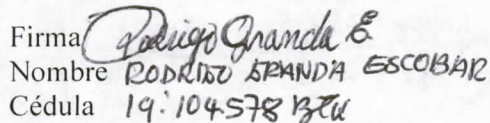 Firma Rodrigo Granda E.
Nombre RODRIGO GRANDA ESCOBAR
Cédula 19.104.578 Bta